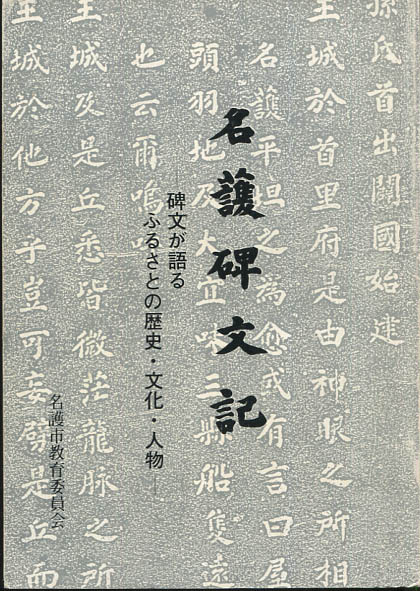 名護碑文記
碑文が語る
ふるさとの歴史・文化・人物—
名護市教育委員会
孫氏首出闢國始建
王城於首里府是由神眼之所相
名護平坦之為 或有言曰屋
頭羽地及大宜味三縣船隻遠
也云爾嗚呼
王城及是丘悉皆微茫龍脉之所
王城於他方子豈可妄廢是丘而